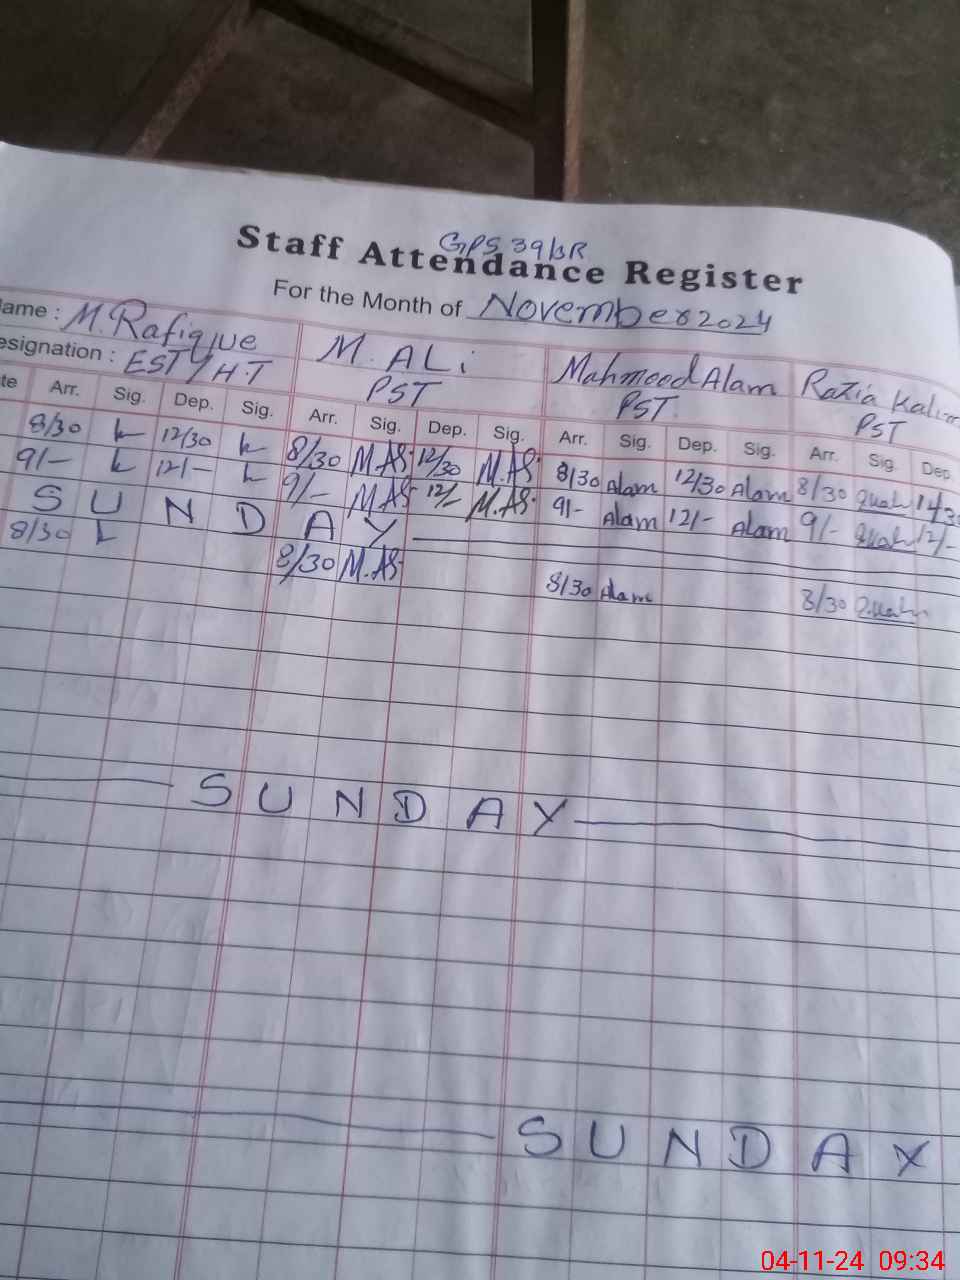 GPS 39/3R
Staff Attendance Register
For the Month of November 2024
ame : M. Rafique M. ALi Mahmood Alam Razia
esignation : EST/H.T PST PST PST
te Arr. Sig. Dep. Sig. Arr. Sig. Dep. Sig. Arr. Sig. Dep. Sig. Arr. Sig. Dep.
8/30 12/30 8/30 M.AS 12/30 M.AS 8/30 Alam 12/30 Alam 8/30
9/- 12/- 9/- M.AS 12/- M.AS 9/- Alam 12/- Alam 9/- 12/-
S U N D A Y
8/30 8/30 M.AS 8/30 Alam 8/30
S U N D A Y
S U N D A Y
04-11-24 09:34